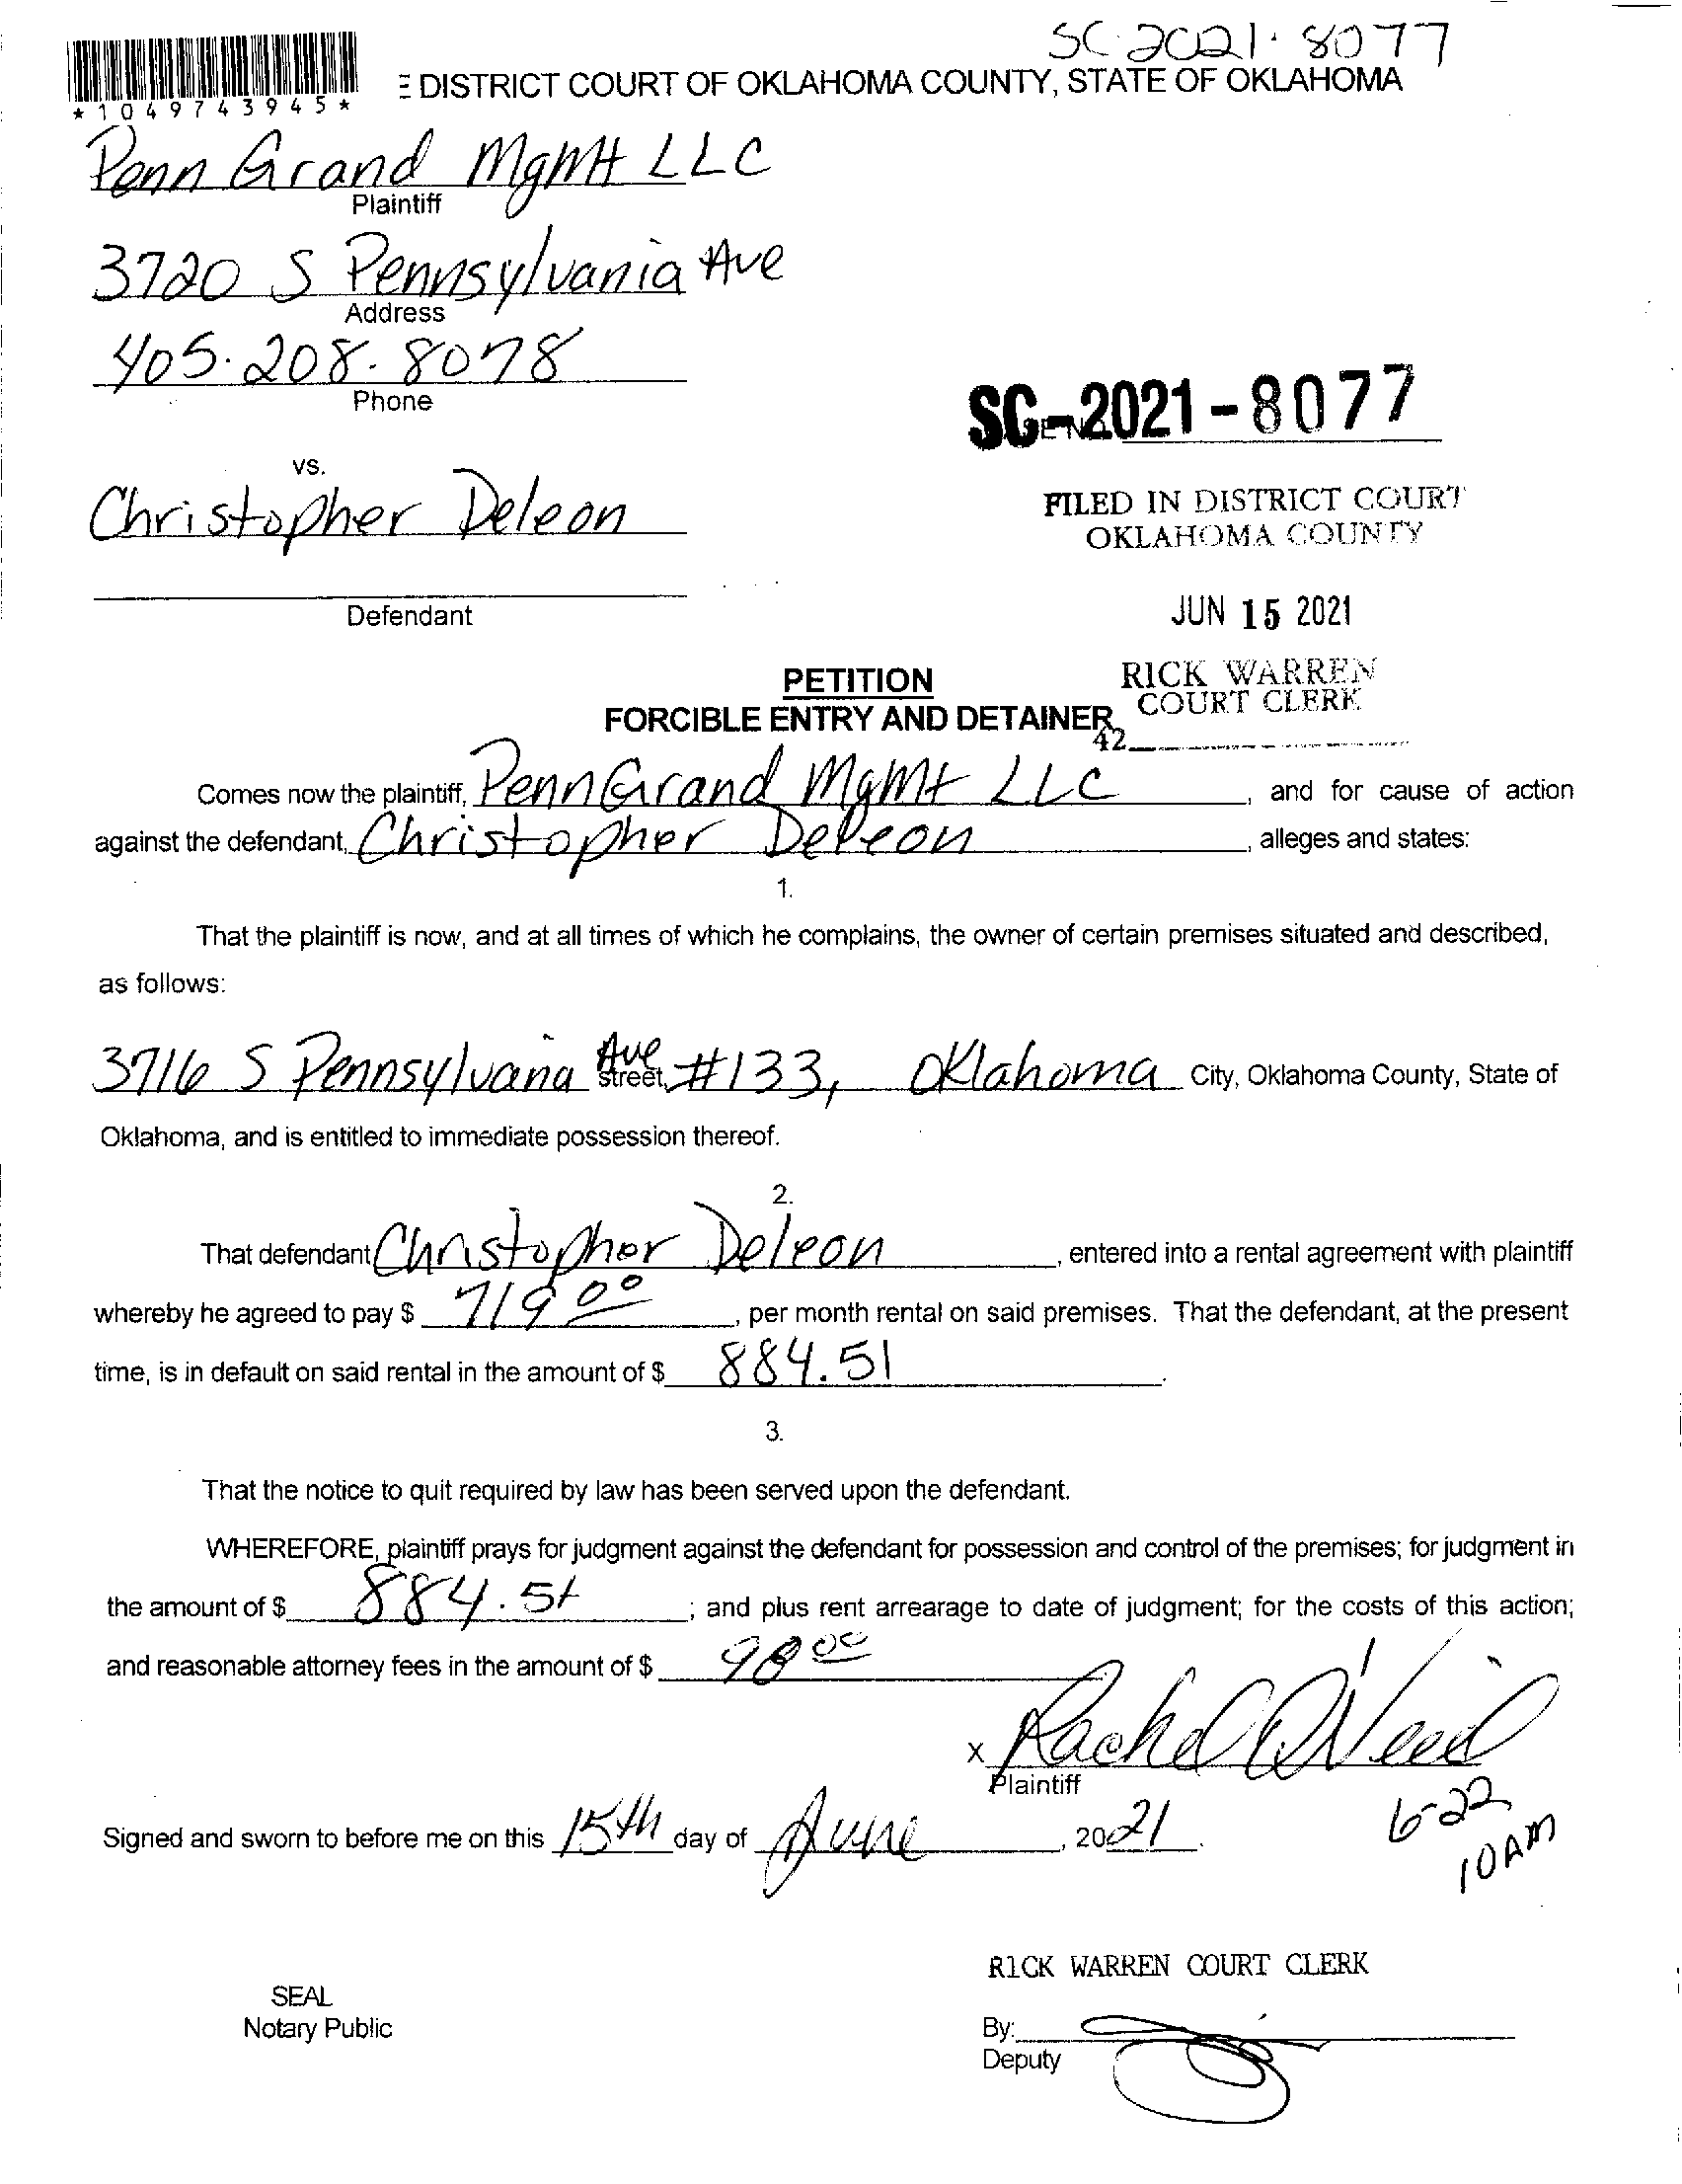 SC-2021-8077
E DISTRICT COURT OF OKLAHOMA COUNTY, STATE OF OKLAHOMA
*1049743945*
Penn Grand Mgmt LLC
Plaintiff
3720 S Pennsylvania Ave
Address
405-208-8078
Phone
SC-2021-8077
vs.
Christopher Deleon
FILED IN DISTRICT COURT
OKLAHOMA COUNTY
Defendant
JUN 15 2021
PETITION
RICK WARREN
COURT CLERK
FORCIBLE ENTRY AND DETAINER
42
Comes now the plaintiff, Penn Grand Mgmt LLC, and for cause of action
against the defendant, Christopher Deleon, alleges and states:
1.
That the plaintiff is now, and at all times of which he complains, the owner of certain premises situated and described,
as follows:
3716 S Pennsylvana Ave street, #133, Oklahoma City, Oklahoma County, State of
Oklahoma, and is entitled to immediate possession thereof.
2.
That defendant Christopher Deleon, entered into a rental agreement with plaintiff
whereby he agreed to pay $ 719.00, per month rental on said premises. That the defendant, at the present
time, is in default on said rental in the amount of $ 884.51.
3.
That the notice to quit required by law has been served upon the defendant.
WHEREFORE, plaintiff prays for judgment against the defendant for possession and control of the premises; for judgment in
the amount of $ 884.51; and plus rent arrearage to date of judgment; for the costs of this action;
and reasonable attorney fees in the amount of $ 98.00
x Rachel O'Neil
Plaintiff
Signed and sworn to before me on this 15th day of June, 2021.
6-22
10AM
RICK WARREN COURT CLERK
SEAL
Notary Public
By:
Deputy